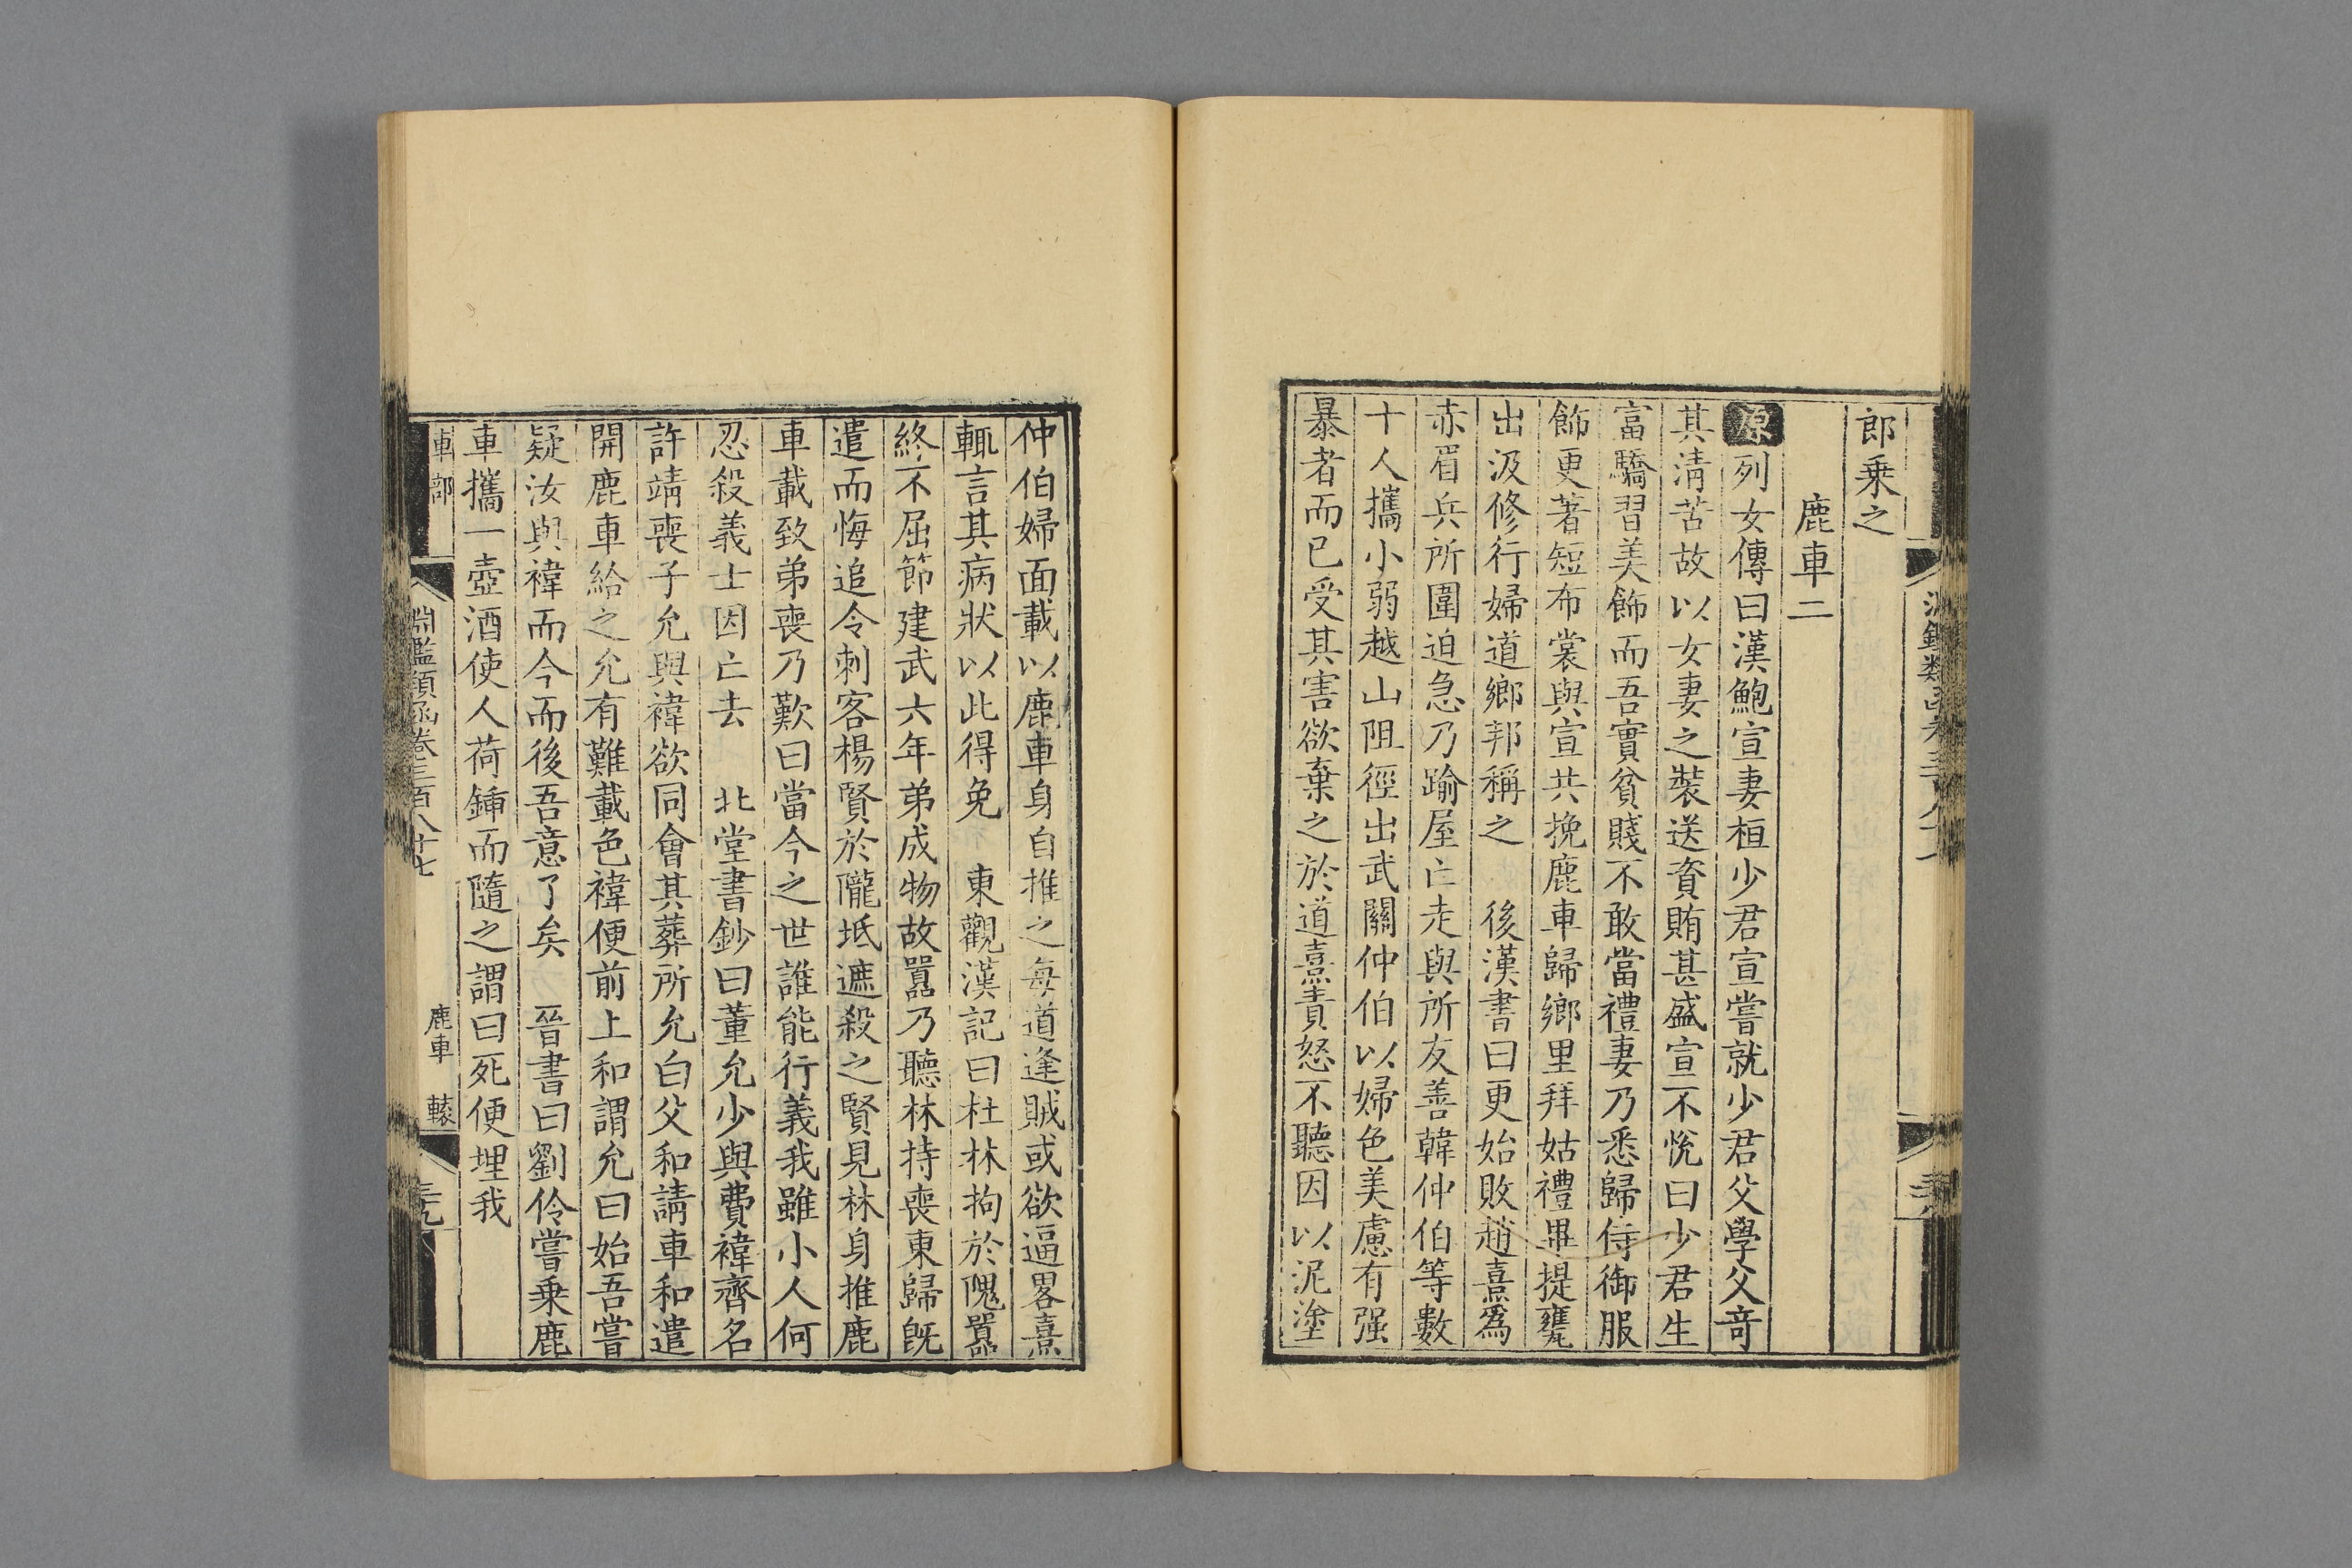 郎乗之
鹿車二
原列女傳曰漢鮑宣妻桓少君宣嘗就少君父學父奇
其清苦故以女妻之裝送資賄甚盛宣不悅曰少君生
富驕習美飾而吾實貧賤不敢當禮妻乃悉歸侍御服
飾更著短布裳與宣共挽鹿車歸鄉里拜姑禮畢提甕
出汲修行婦道鄉邦稱之　後漢書曰更始敗趙熹爲
赤眉兵所圍迫急乃踰屋亡走與所友善韓仲伯等數
十人攜小弱越山阻徑出武關仲伯以婦色美慮有强
暴者而已受其害欲棄之於道熹責怒不聽因以泥塗
仲伯婦面載以鹿車身自推之每道逢賊或欲逼畧熹
輒言其病狀以此得免　東觀漢記曰杜林拘於隗囂
終不屈節建武六年弟成物故囂乃聽林持喪東歸旣
遣而悔追令刺客楊賢於隴坻遮殺之賢見林身推鹿
車載致弟喪乃歎曰當今之世誰能行義我雖小人何
忍殺義士因亡去　北堂書鈔曰董允少與費褘齊名
許靖喪子允與褘欲同會其葬所允白父和請車和遣
開鹿車給之允有難載色褘便前上和謂允曰始吾嘗
疑汝與褘而今而後吾意了矣　晉書曰劉伶嘗乗鹿
車攜一壺酒使人荷鍤而隨之謂曰死便埋我
車部
淵鑑類函卷三百八十七
鹿車　轅
三九